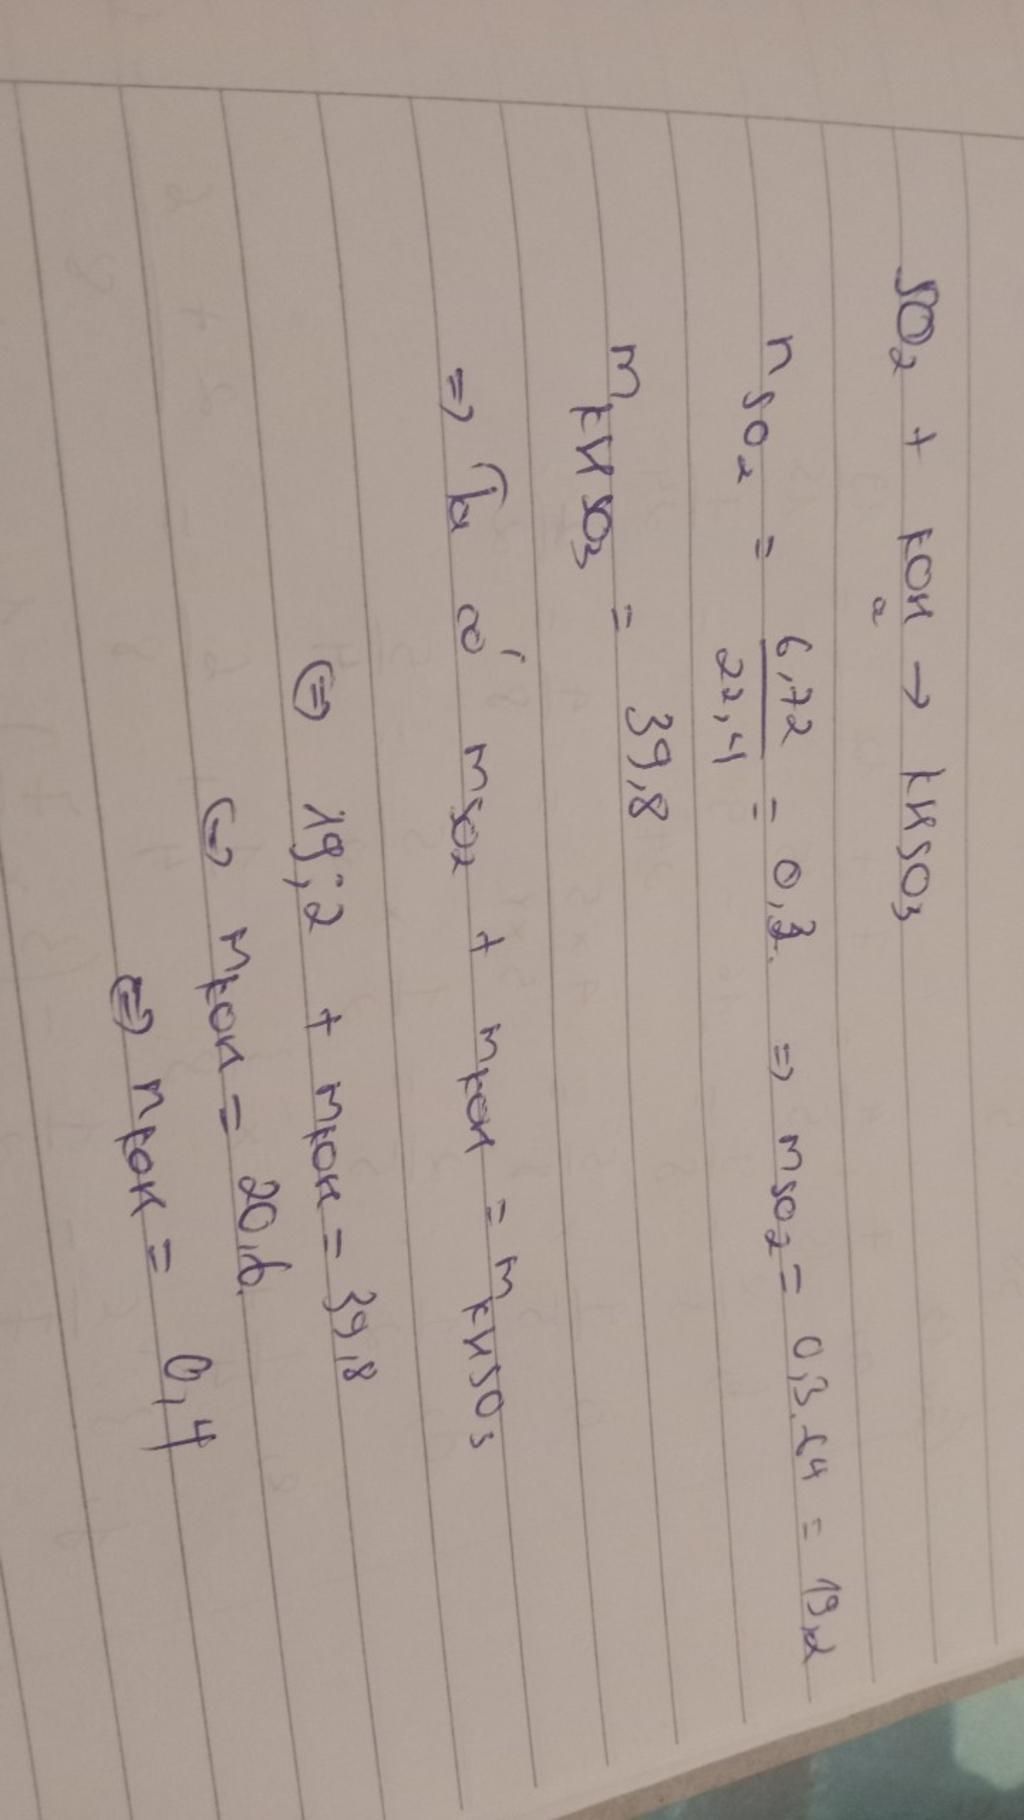 SO2 + KOH → KHSO3
a
nSO2 = 6,72/22,4 = 0,3 ⇒ mSO2 = 0,3.64 = 19,2
mKHSO3 = 39,8
⇒ Ta có mSO2 + mKOH = mKHSO3
⇔ 19,2 + mKOH = 39,8
⇔ mKOH = 20,6
⇔ nKOH = 0,4